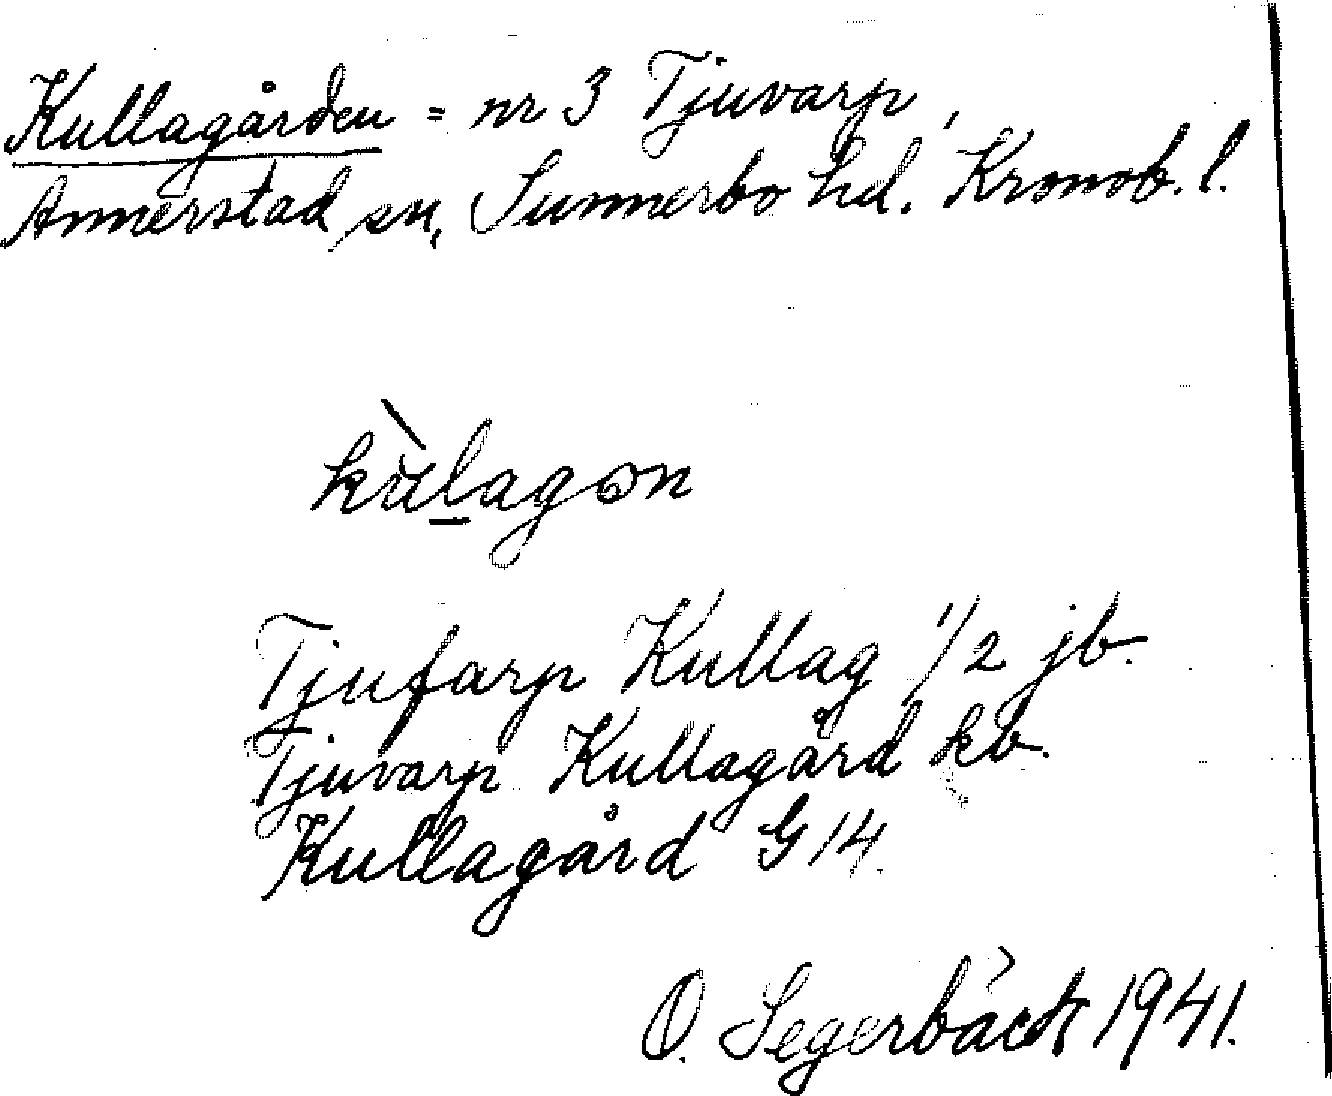 Kullagården = nr 3 Tjuvarp,
Annerstad sn, Sunnerbo hd. Kronob. l.
kùlagɔn
Tjufarp Kullag 1/2 jb.
Tjuvarp Kullagård kb.
Kullagård G 14.
O. Segerbäck 1941.